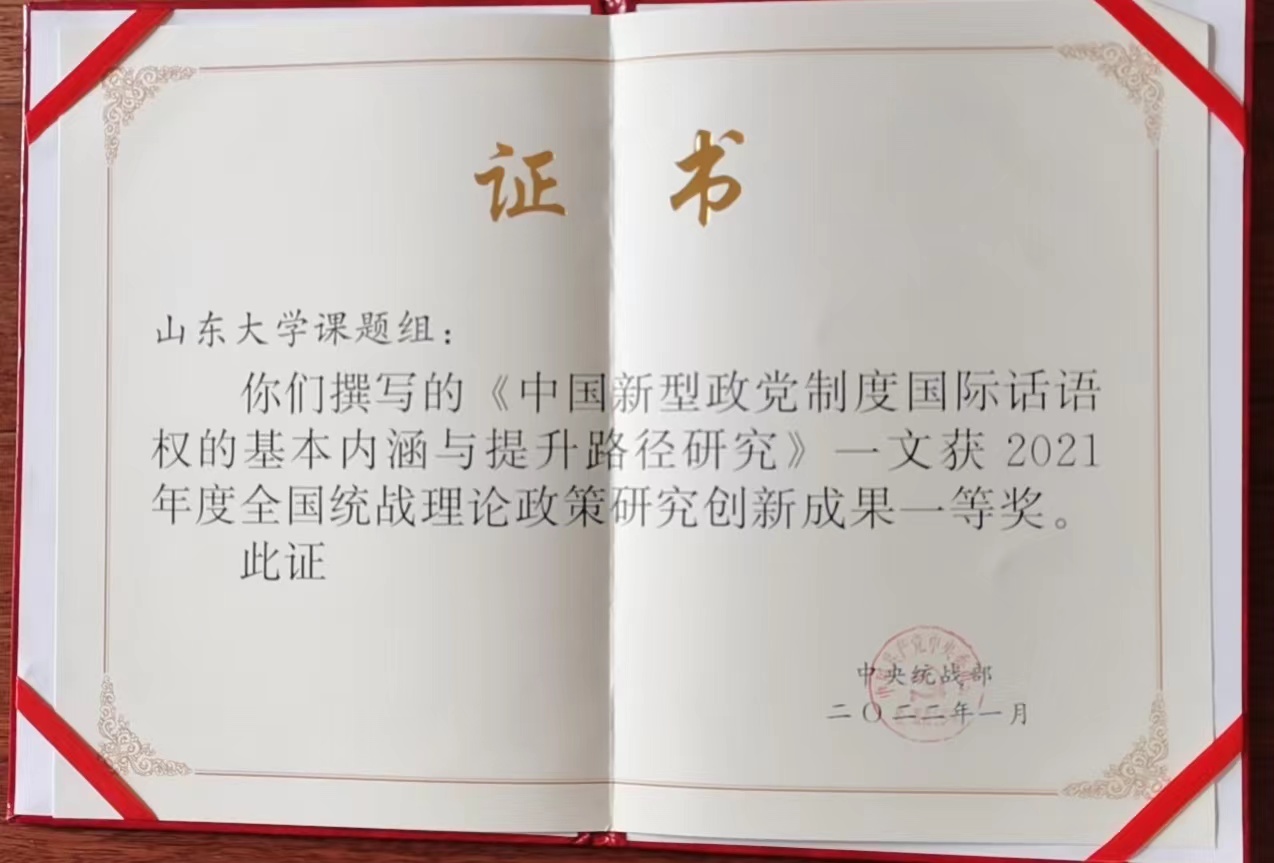 证 书
山东大学课题组：
你们撰写的《中国新型政党制度国际话语
权的基本内涵与提升路径研究》一文获 2021
年度全国统战理论政策研究创新成果一等奖。
此证
中央统战部
二〇二二年一月